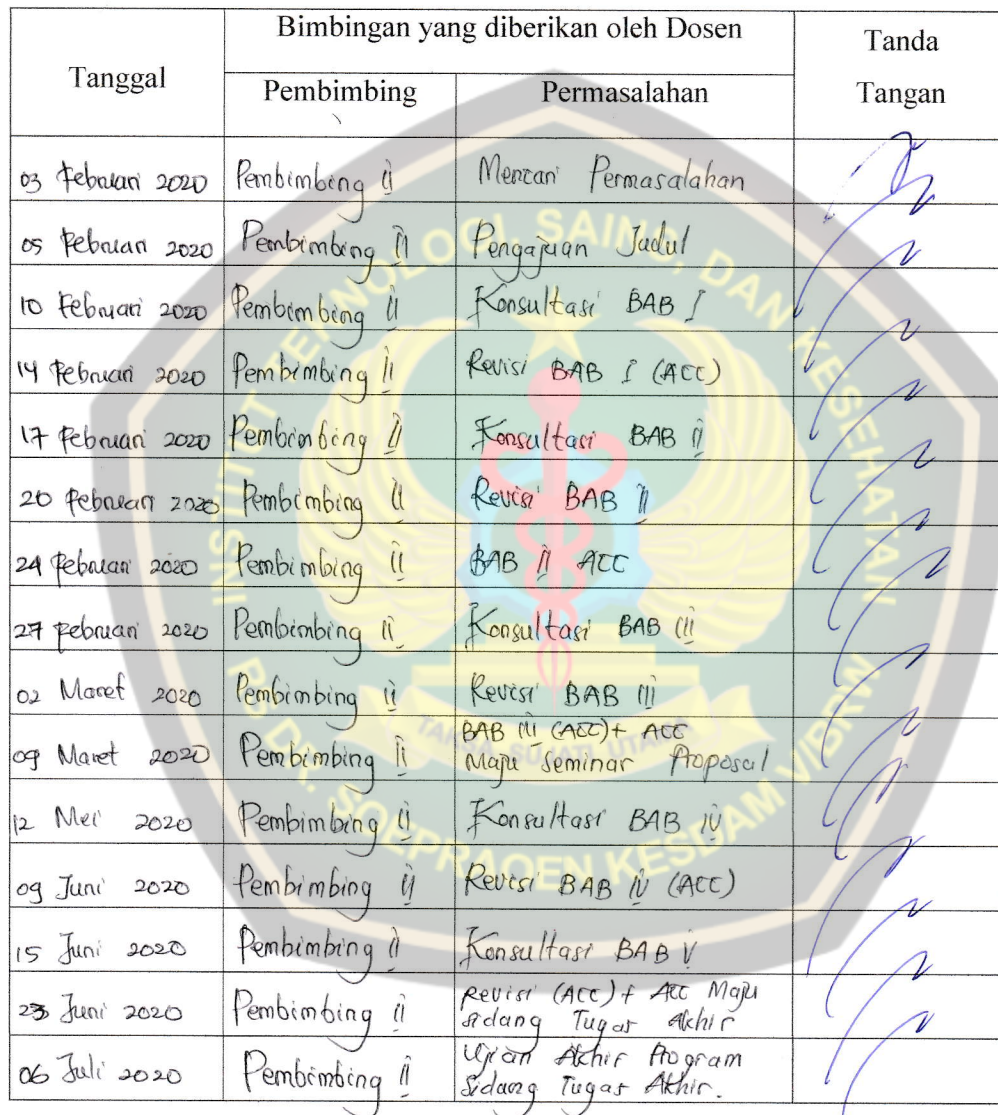 Tanggal
Bimbingan yang diberikan oleh Dosen
Tanda Tangan
Pembimbing
Permasalahan
03 Februari 2020 Pembimbing II Mencari Permasalahan
05 Februari 2020 Pembimbing II Pengajuan Judul
10 Februari 2020 Pembimbing II Konsultasi BAB I
14 Februari 2020 Pembimbing II Revisi BAB I (ACC)
17 Februari 2020 Pembimbing II Konsultasi BAB II
20 Februari 2020 Pembimbing II Revisi BAB II
24 Februari 2020 Pembimbing II BAB II ACC
27 Februari 2020 Pembimbing II Konsultasi BAB III
02 Maret 2020 Pembimbing II Revisi BAB III
09 Maret 2020 Pembimbing II BAB III (ACC) + ACC
Maju Seminar Proposal
12 Mei 2020 Pembimbing II Konsultasi BAB IV
09 Juni 2020 Pembimbing II Revisi BAB IV (ACC)
15 Juni 2020 Pembimbing II Konsultasi BAB V
23 Juni 2020 Pembimbing II Revisi (ACC) + ACC Maju
sidang Tugas Akhir
06 Juli 2020 Pembimbing II Ujian Akhir Program
Sidang Tugas Akhir.
INSTITUT TEKNOLOGI, SAINS, DAN KESEHATAN
RS DR. SOEPRAOEN KESDAM V/BRW